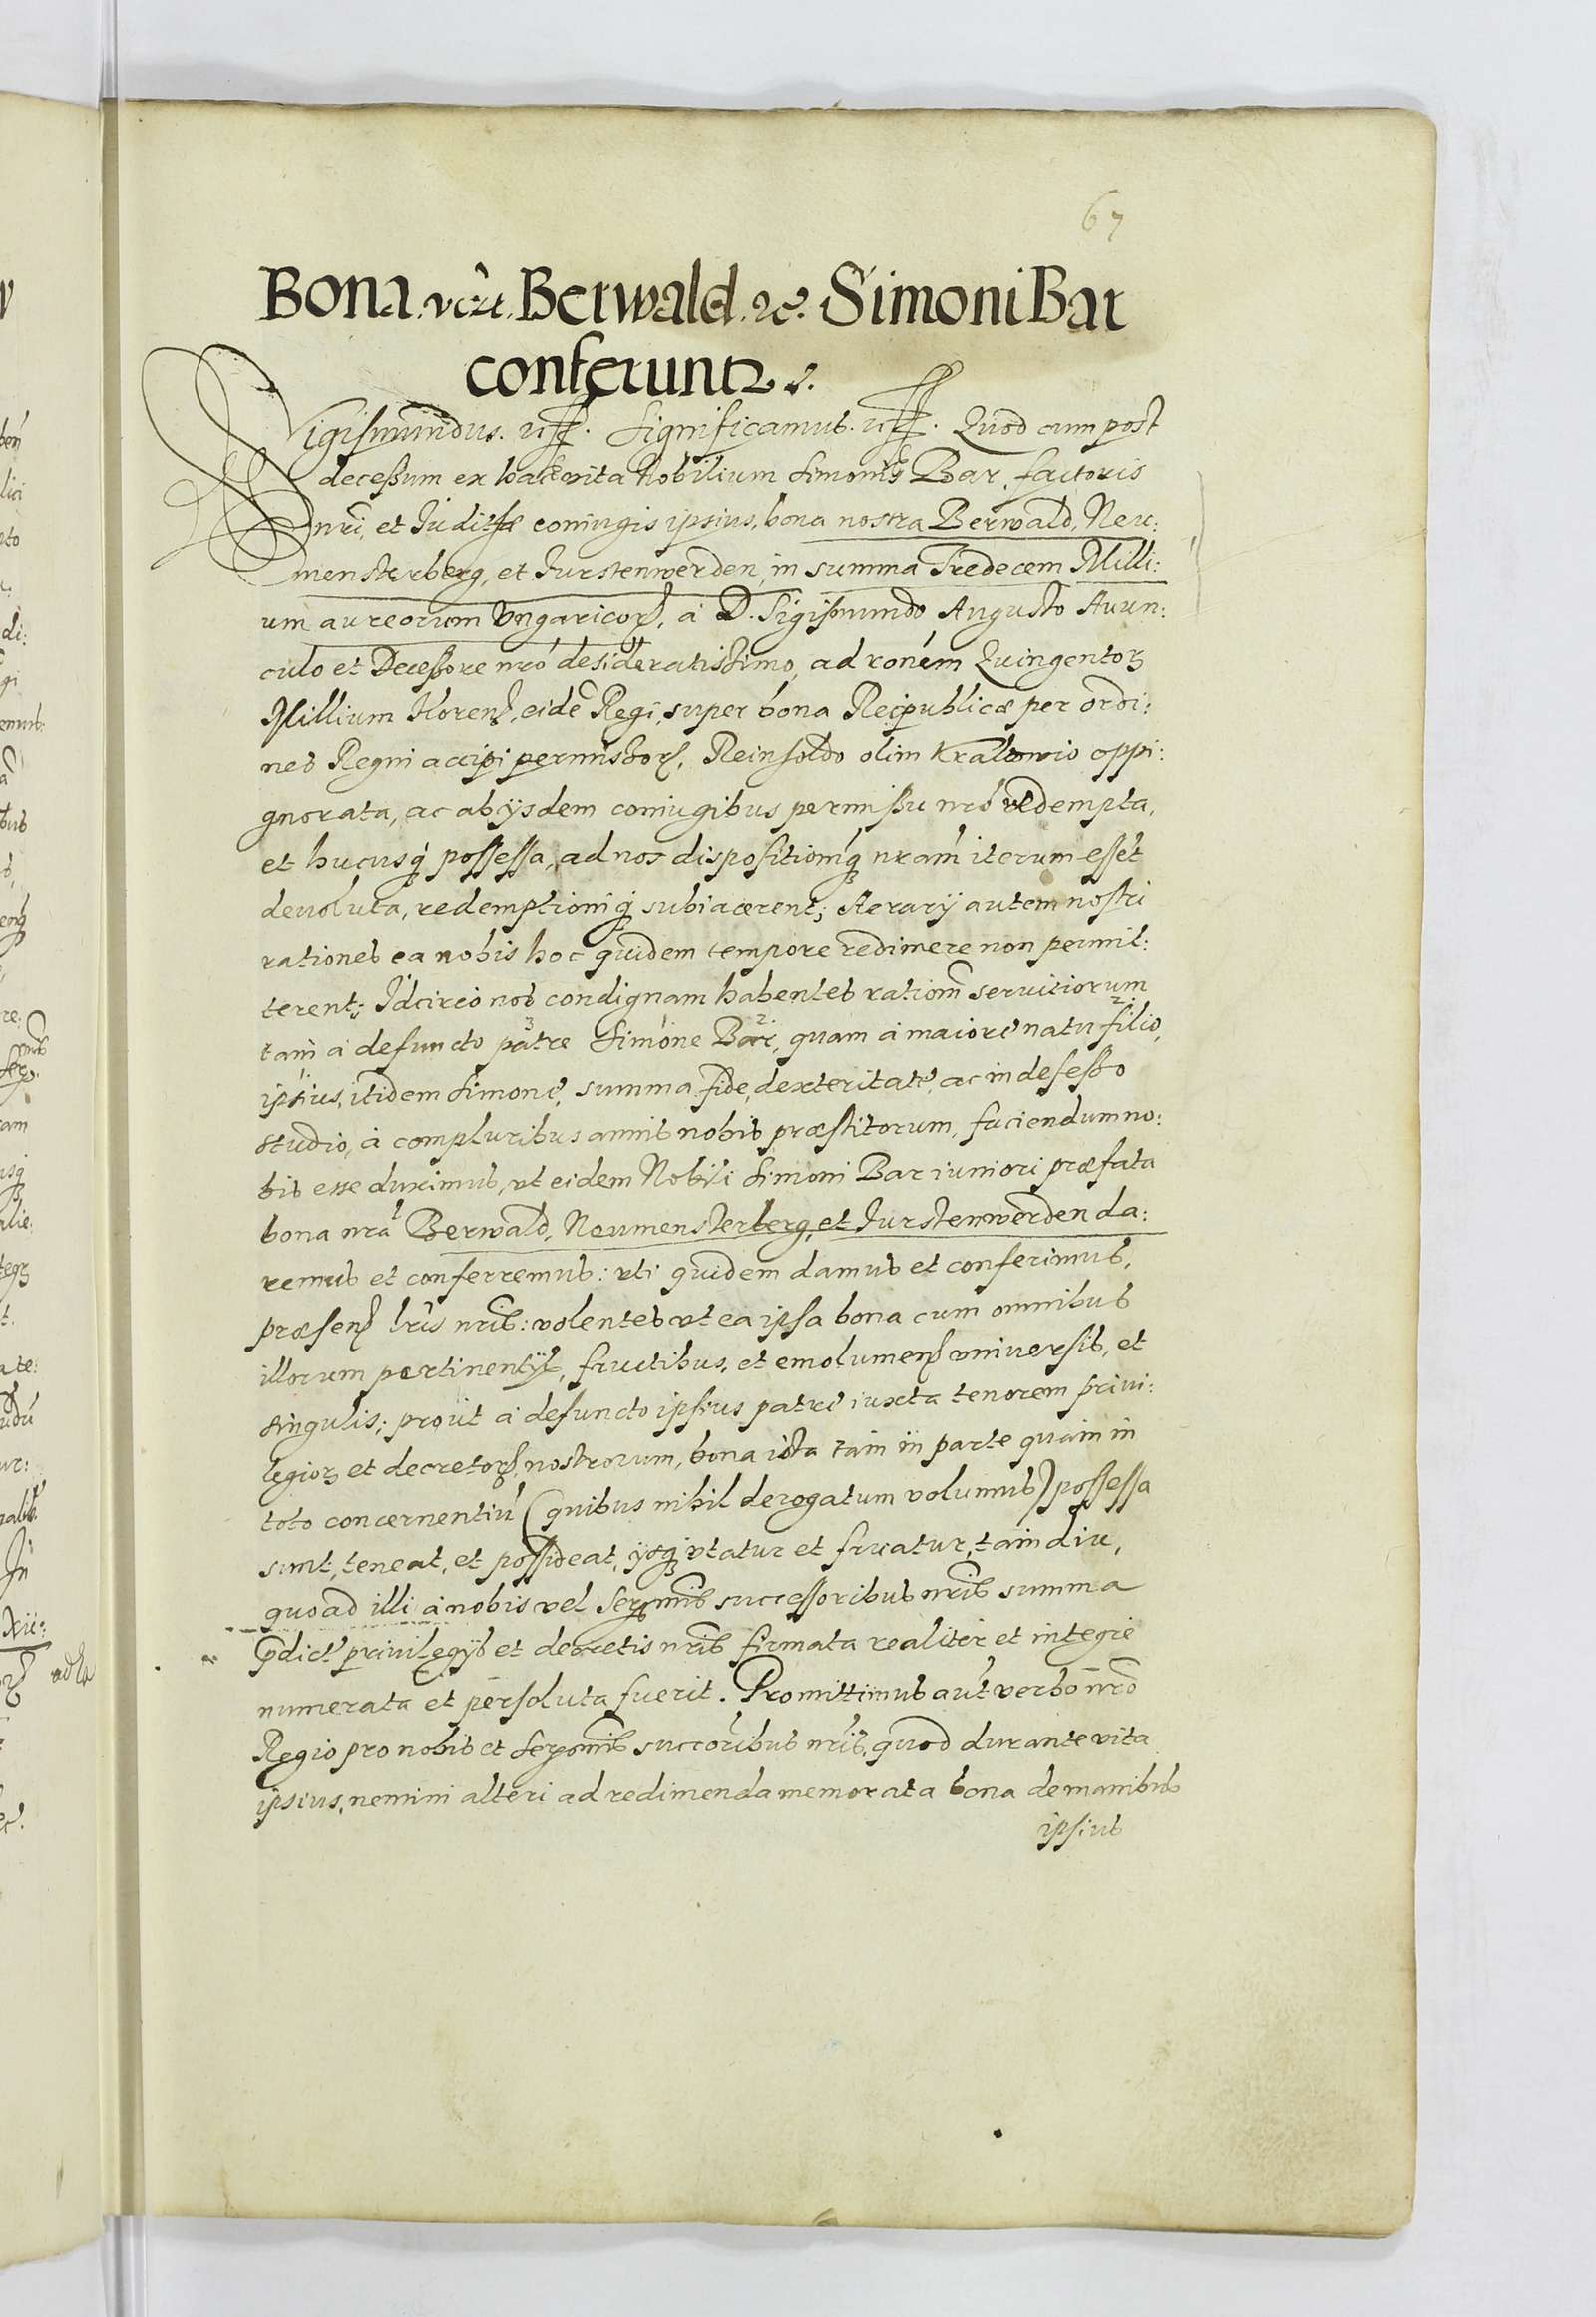 67
Bona vert. Berwald. &c. Simoni Bar
conferuntr.
Sigismundus. Significamus. Quod cum post
decessum ex hac vita Nobilium Simonis Bar, factoris
nri, et Judithæ coniugis ipsius, bona nostra Berwald, Neu:
mensterberg, et Furstenwerden, in summa Tredecem Milli:
um aureorum Ungaricorʒ, á D. Sigismundo Augusto Avun:
culo et Decessore nró desideratissimo, ad roném Quingentoʒ
Millium Florenʒ, eidē Regi, super bona Reipublicæ per ordi:
nes Regni accipi permissorʒ, Reinholdo olim Krakowio oppi:
gnorata, ac ab ijsdem coniugibus permissu nró redempta,
et hucusq́ possessa, ad nos dispositiomq́ʒ nram iterum essét
devoluta, redemptioniq́ʒ subiacerent; Aerarij autem nostri
rationes ea nobis hoc quidem tempore redimere non permit:
terent; Idcirco nos condignam habentes rationē servitiorum
tam á defuncto patre Simone Bar, quam á maiore natu filio,
ipsius, itidem Simone, summa fide, dexteritate, ac indefesso
studio, á compluribus annis nobis præstitorum, faciendum no:
bis esse duximus, ut eidem Nobili Simoni Bar iuniori præfata
bona nra Berwald, Neumensterberg, et Furstenwerden da:
remus et conferremus: uti quidem damus et conferimus,
præsenʒ lris nris: volentes ut ea ipsa bona cum omnibus
illorum pertinentijs, fructibus, et emolumenʒ universis, et
singulis; prout á defuncto ipsius patre iuxta tenorem privi:
legioʒ et decretorʒ nostrorum, bona ista tam in parte quam in
toto concernentiū (quibus nihil derogatum volumus) possessa
sunt, teneat, et possideat, ijsq́ʒ utatur et fruatur, tam diu,
quoad illi á nobis vel Sermis successoribus nris summa
p̄dict' privilegijs et decretis nris firmata realiter et integre
numerata et persoluta fuerit. Promittimus aut verbo nró
Regio pro nobis et Sermis succoribus nris, quod durante vita
ipsius, nemini alteri ad redimenda memorata bona de manibus
ipsius